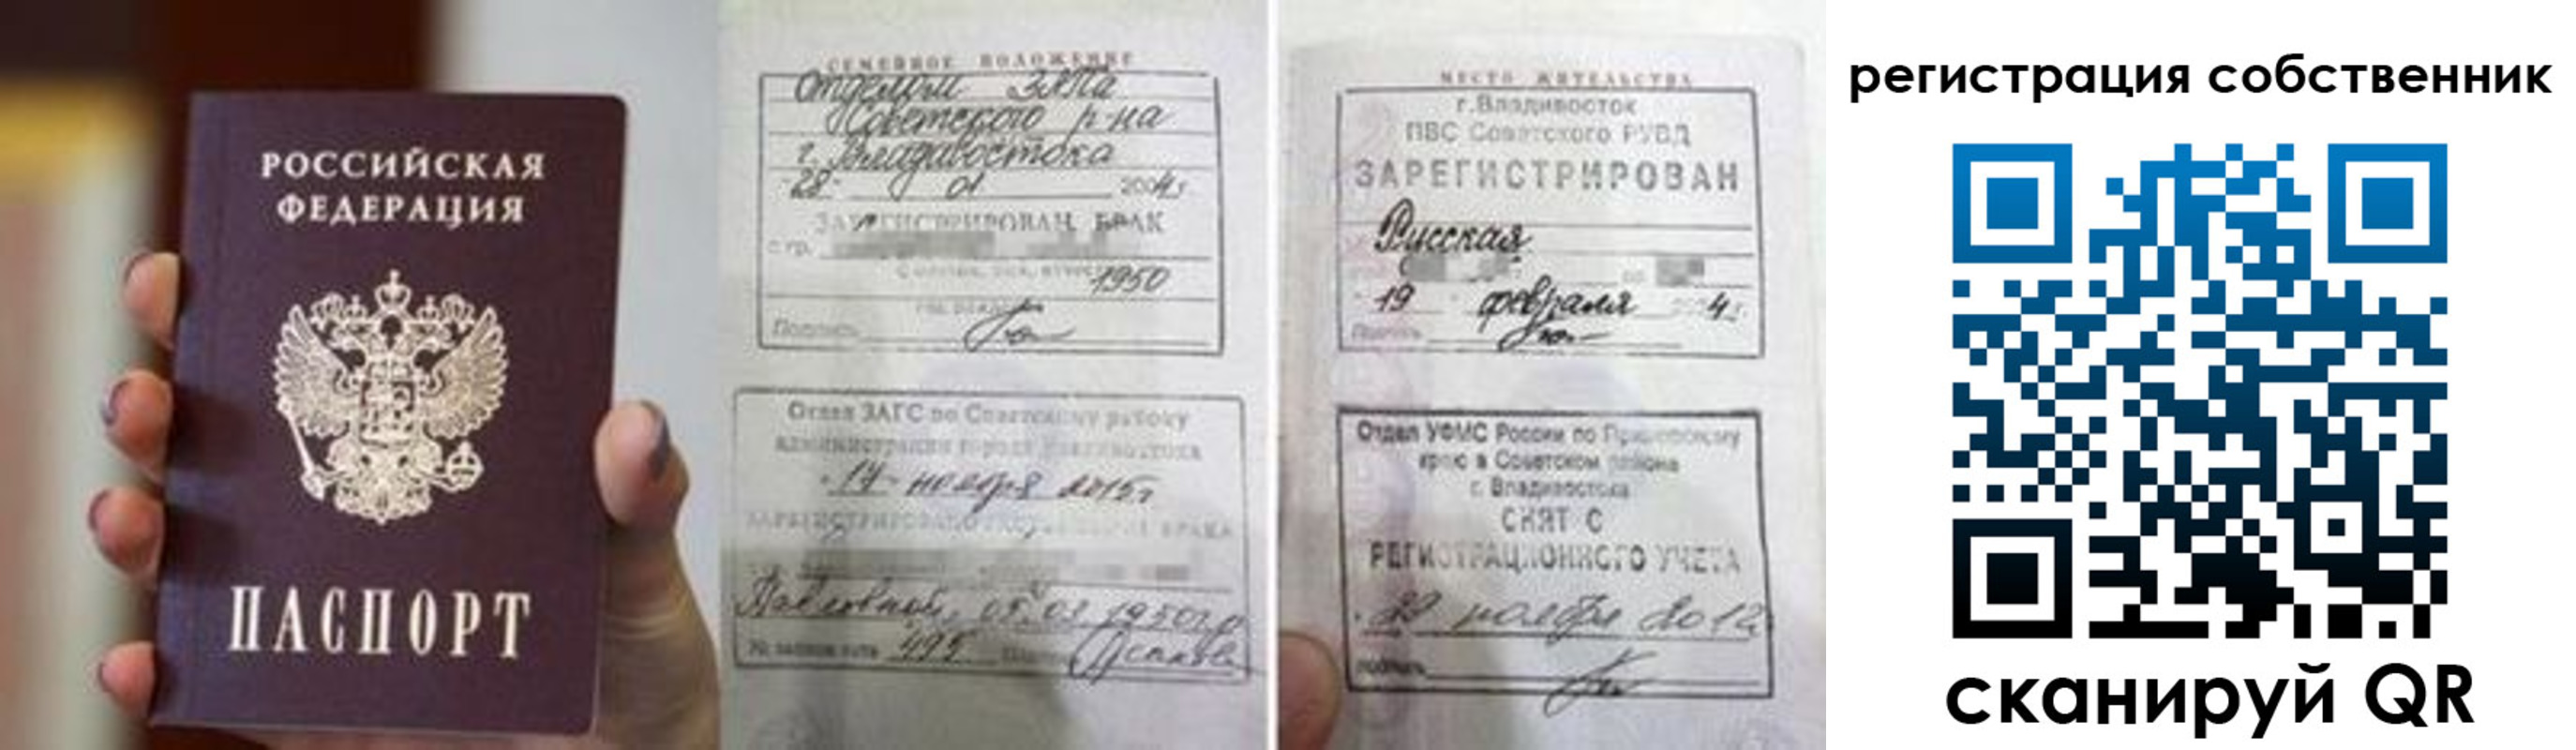 РОССИЙСКАЯ
ФЕДЕРАЦИЯ
ПАСПОРТ
СЕМЕЙНОЕ ПОЛОЖЕНИЕ
Отделом ЗАГСа
Советского р-на
г. Владивостока
28 01 2004г.
ЗАРЕГИСТРИРОВАН БРАК
с гр.
1950
Подпись
Отдел ЗАГС по Советскому району
администрации города Владивостока
17 ноября 2015г
БРАКА
Павловной, 05.03.1950г.р
495
МЕСТО ЖИТЕЛЬСТВА
г.Владивосток
ПВС Советского РУВД
ЗАРЕГИСТРИРОВАН
Русская
19 февраля 4г.
Подпись
Отдел УФМС России по Приморскому
краю в Советском районе
г. Владивостока
СНЯТ С
РЕГИСТРАЦИОННОГО УЧЕТА
ноября 2012
подпись
регистрация собственник
сканируй QR